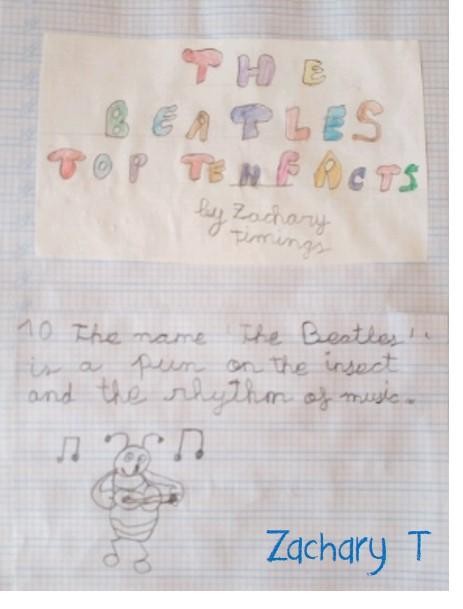 THE
BEATLES
TOP TEN FACTS
by Zachary
Timings
10 The name 'The Beatles''
is a pun on the insect
and the rhythm of music.
Zachary T